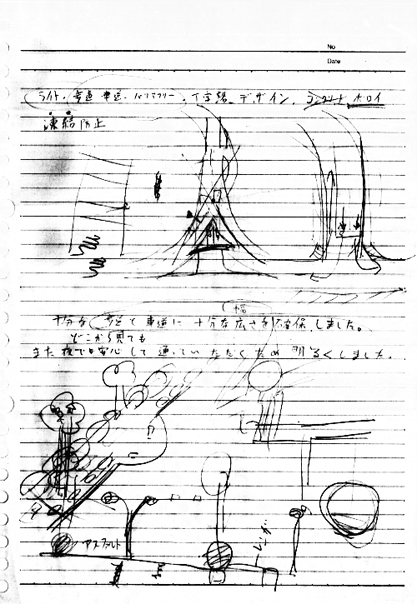 No
Date
ライト、歩道 車道、バリアフリー、丁字路、デザイン、
凍結防止
十分な歩道と車道に十分な広さを確保しました。
幅
どこから見ても
また夜でも安心して通っていただくため明るくしました。
アスファルト
レンガ